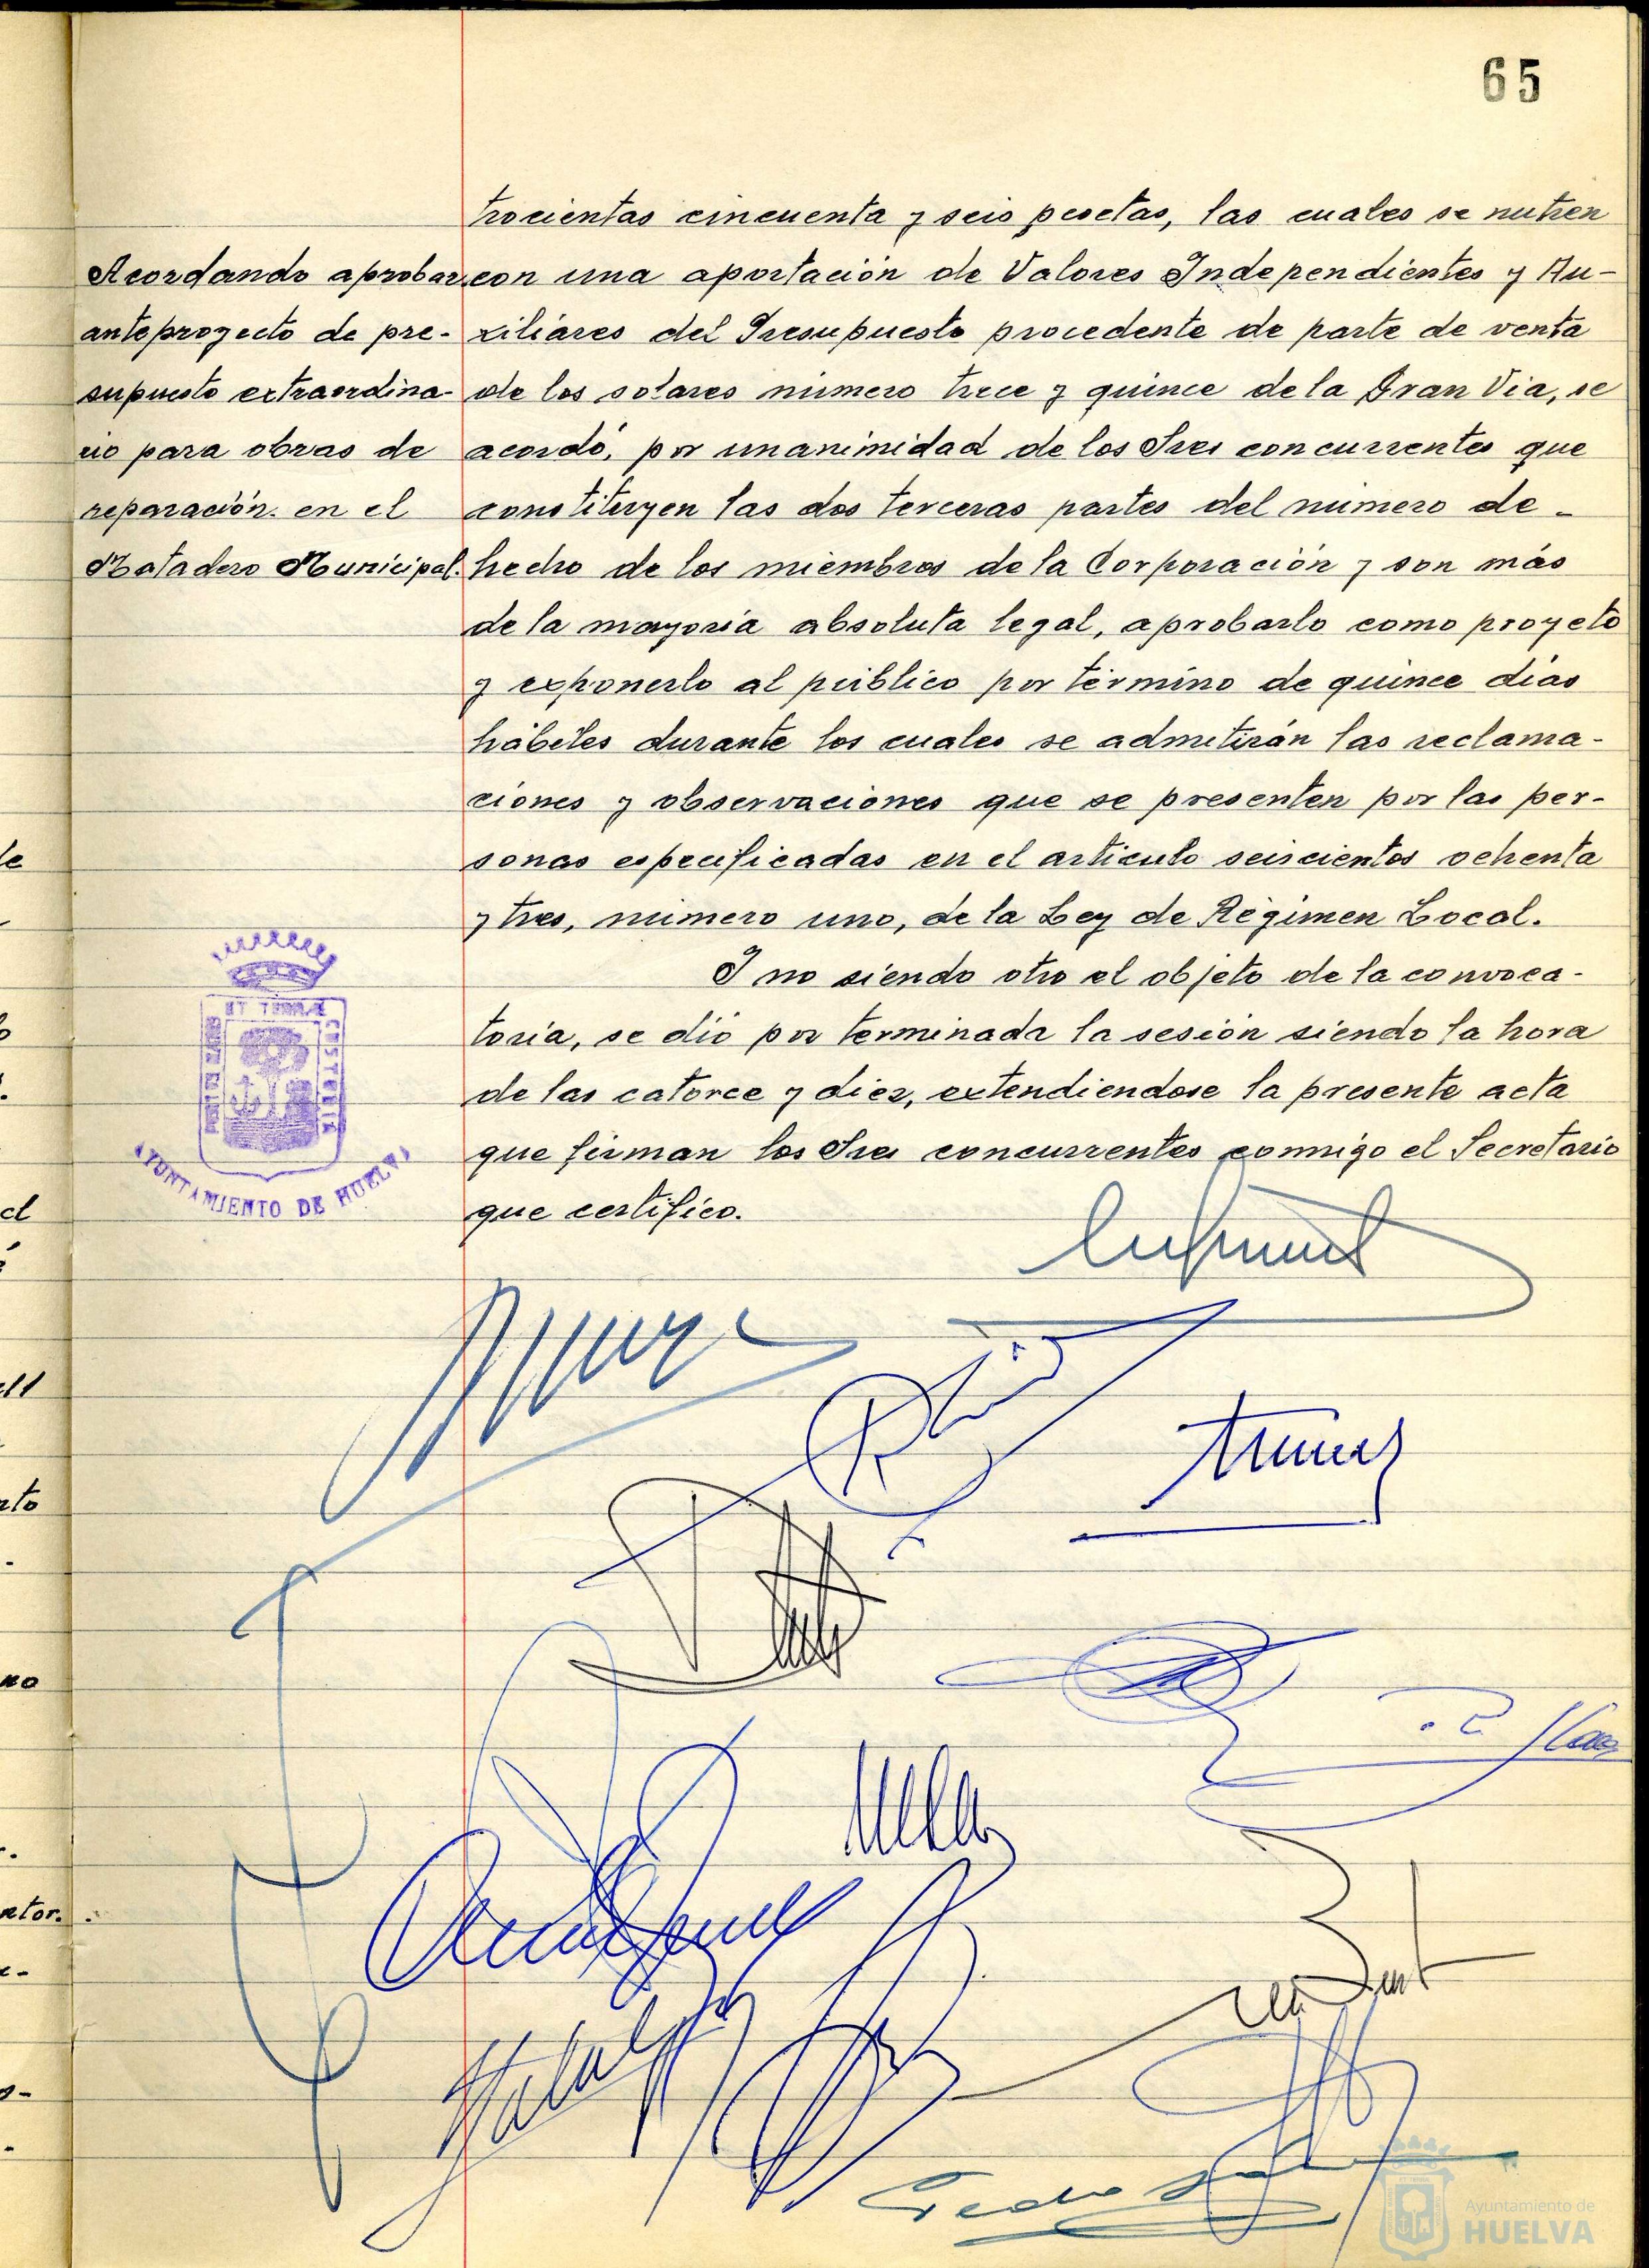 65
trocientas cincuenta y seis pesetas, las cuales se nutren
Acordando aprobar
anteproyecto de pre-
supuesto extraordina-
rio para obras de
reparación en el
Matadero Municipal.
con una aportación de Valores Independientes y Au-
xiliares del Presupuesto procedente de parte de venta
de los solares número trece y quince de la Gran Via, se
acordó, por unanimidad de los Sres concurrentes que
constituyen las dos terceras partes del número de-
hecho de los miembros de la Corporación y son más
de la mayoria absoluta legal, aprobarlo como proyeto
y exponerlo al público por término de quince dias
hábiles durante los cuales se admitirán las reclama-
ciones y observaciones que se presenten por las per-
sonas especificadas en el articulo seiscientos ochenta
y tres, número uno, de la Ley de Régimen Local.
Y no siendo otro el objeto de la convoca-
toria, se dió por terminada la sesión siendo la hora
de las catorce y diez, extendiendose la presente acta
que firman los Sres concurrentes conmigo el Secretario
que certifico.
ET TERRAE
CUSTODIA
AYUNTAMIENTO DE HUELVA
Pedro
Ayuntamiento de
HUELVA